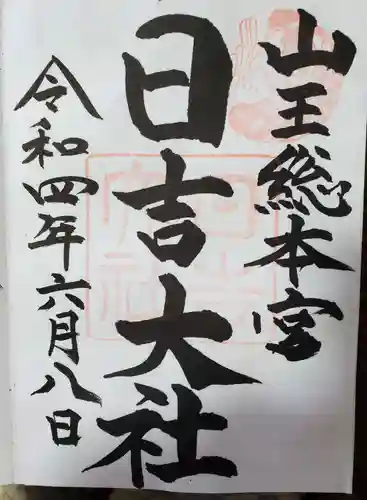 山王総本宮
日吉大社
令和四年六月八日